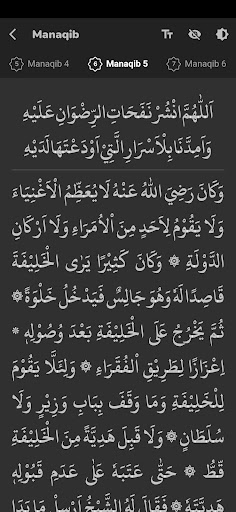 Manaqib
Tт
5 Manaqib 4
6 Manaqib 5
7 Manaqib 6
اَللّٰهُمَّ انْشُرْ نَفَحَاتِ الرِّضْوَانِ عَلَيْهِ
وَاَمِدَّنَا بِالْاَسْرَارِ الَّتِيْ اَوْدَعْتَهَا لَدَيْهِ
وَكَانَ رَضِيَ اللّٰهُ عَنْهُ لَا يُعَظِّمُ الْاَغْنِيَاءَ
وَلَا يَقُوْمُ لِاَحَدٍ مِنَ الْاُمَرَاءِ وَلَا اَرْكَانِ
الدَّوْلَةِ ۞ وَكَانَ كَثِيْرًا يَرَى الْخَلِيْفَةَ
قَاصِدًا لَهُ وَهُوَ جَالِسٌ فَيَدْخُلُ خَلْوَةً ۞
ثُمَّ يَخْرُجُ عَلَى الْخَلِيْفَةِ بَعْدَ وُصُوْلِهِ ۞
اِعْزَازًا لِطَرِيْقِ الْفُقَرَاءِ ۞ وَلِئَلَّا يَقُوْمَ
لِلْخَلِيْفَةِ وَمَا وَقَفَ بِبَابِ وَزِيْرٍ وَلَا
سُلْطَانٍ ۞ وَلَا قَبِلَ هَدِيَّةً مِنَ الْخَلِيْفَةِ
قَطُّ ۞ حَتَّى عَتَبَهُ عَلَى عَدَمِ قَبُوْلِهِ
هَدِيَّتَهُ ۞ فَقَالَ لَهُ الشَّيْخُ اَرْسِلْ مَا بَدَا